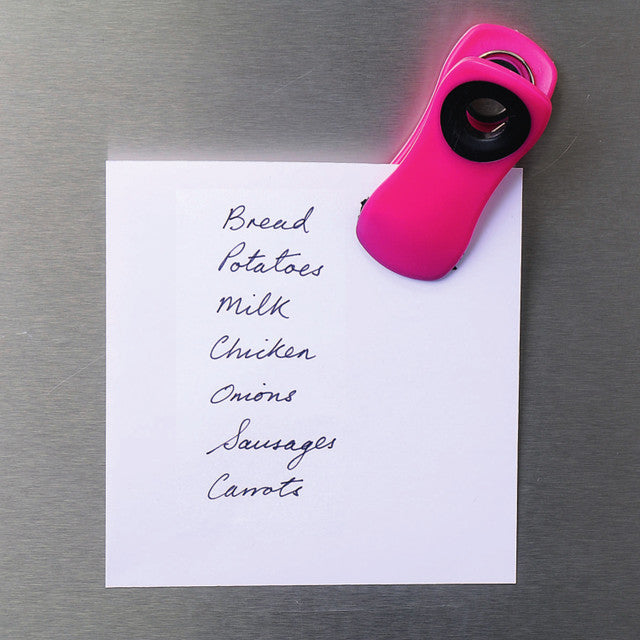 Bread
Potatoes
Milk
Chicken
Onions
Sausages
Carrots